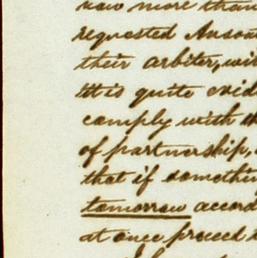 now more than
requested Anson
their arbiter, wi
It is quite evid
comply with th
of partnership,
that if somethin
tomorrow accord
at once proceed